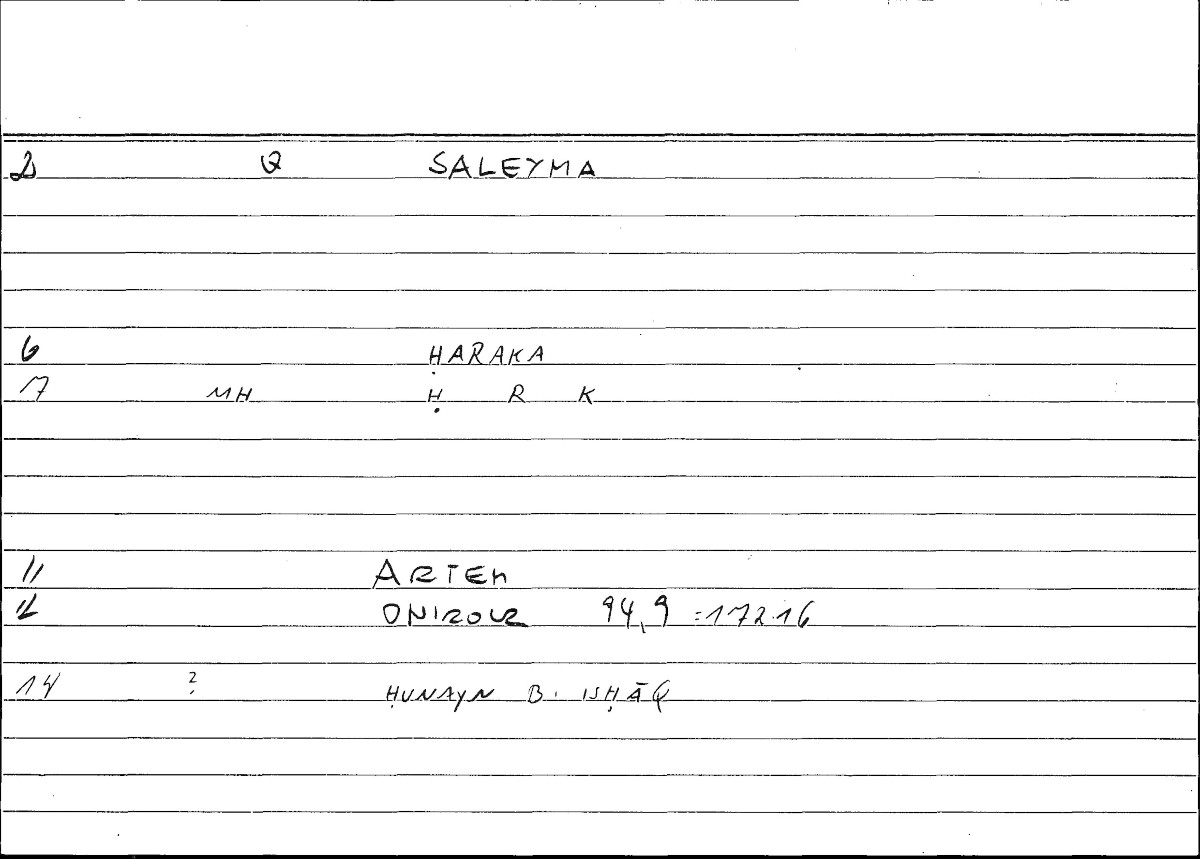 2 Q SALEYMA
6 ḤARAKA
17 MH Ḥ R K
11 ARTEM
12 ONIROCR 94,9 =172.16
14 ? ḤUNAYN B. ISḤĀQ